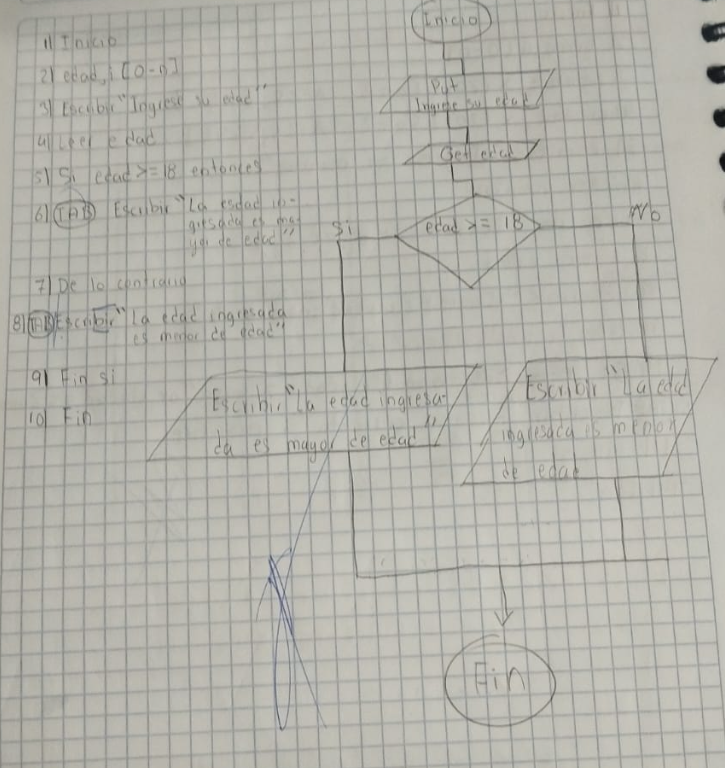 1) Inicio
2) edad, i [0-n]
3) Escribir "Ingrese su edad"
4) Leer edad
5) Si edad >= 18 entonces
6) TAB Escribir "La esdad in-
gresada es ma-
yor de edad"
7) De lo contrario
8) TAB Escribir "La edad ingresada
es menor de edad"
9) Fin si
10) Fin
Inicio
Put
Ingrese su edad
Get edad
edad >= 18
Si
No
Escribir "La edad ingresa-
da es mayor de edad"
Escribir "La edad
ingresada es menor
de edad
Fin